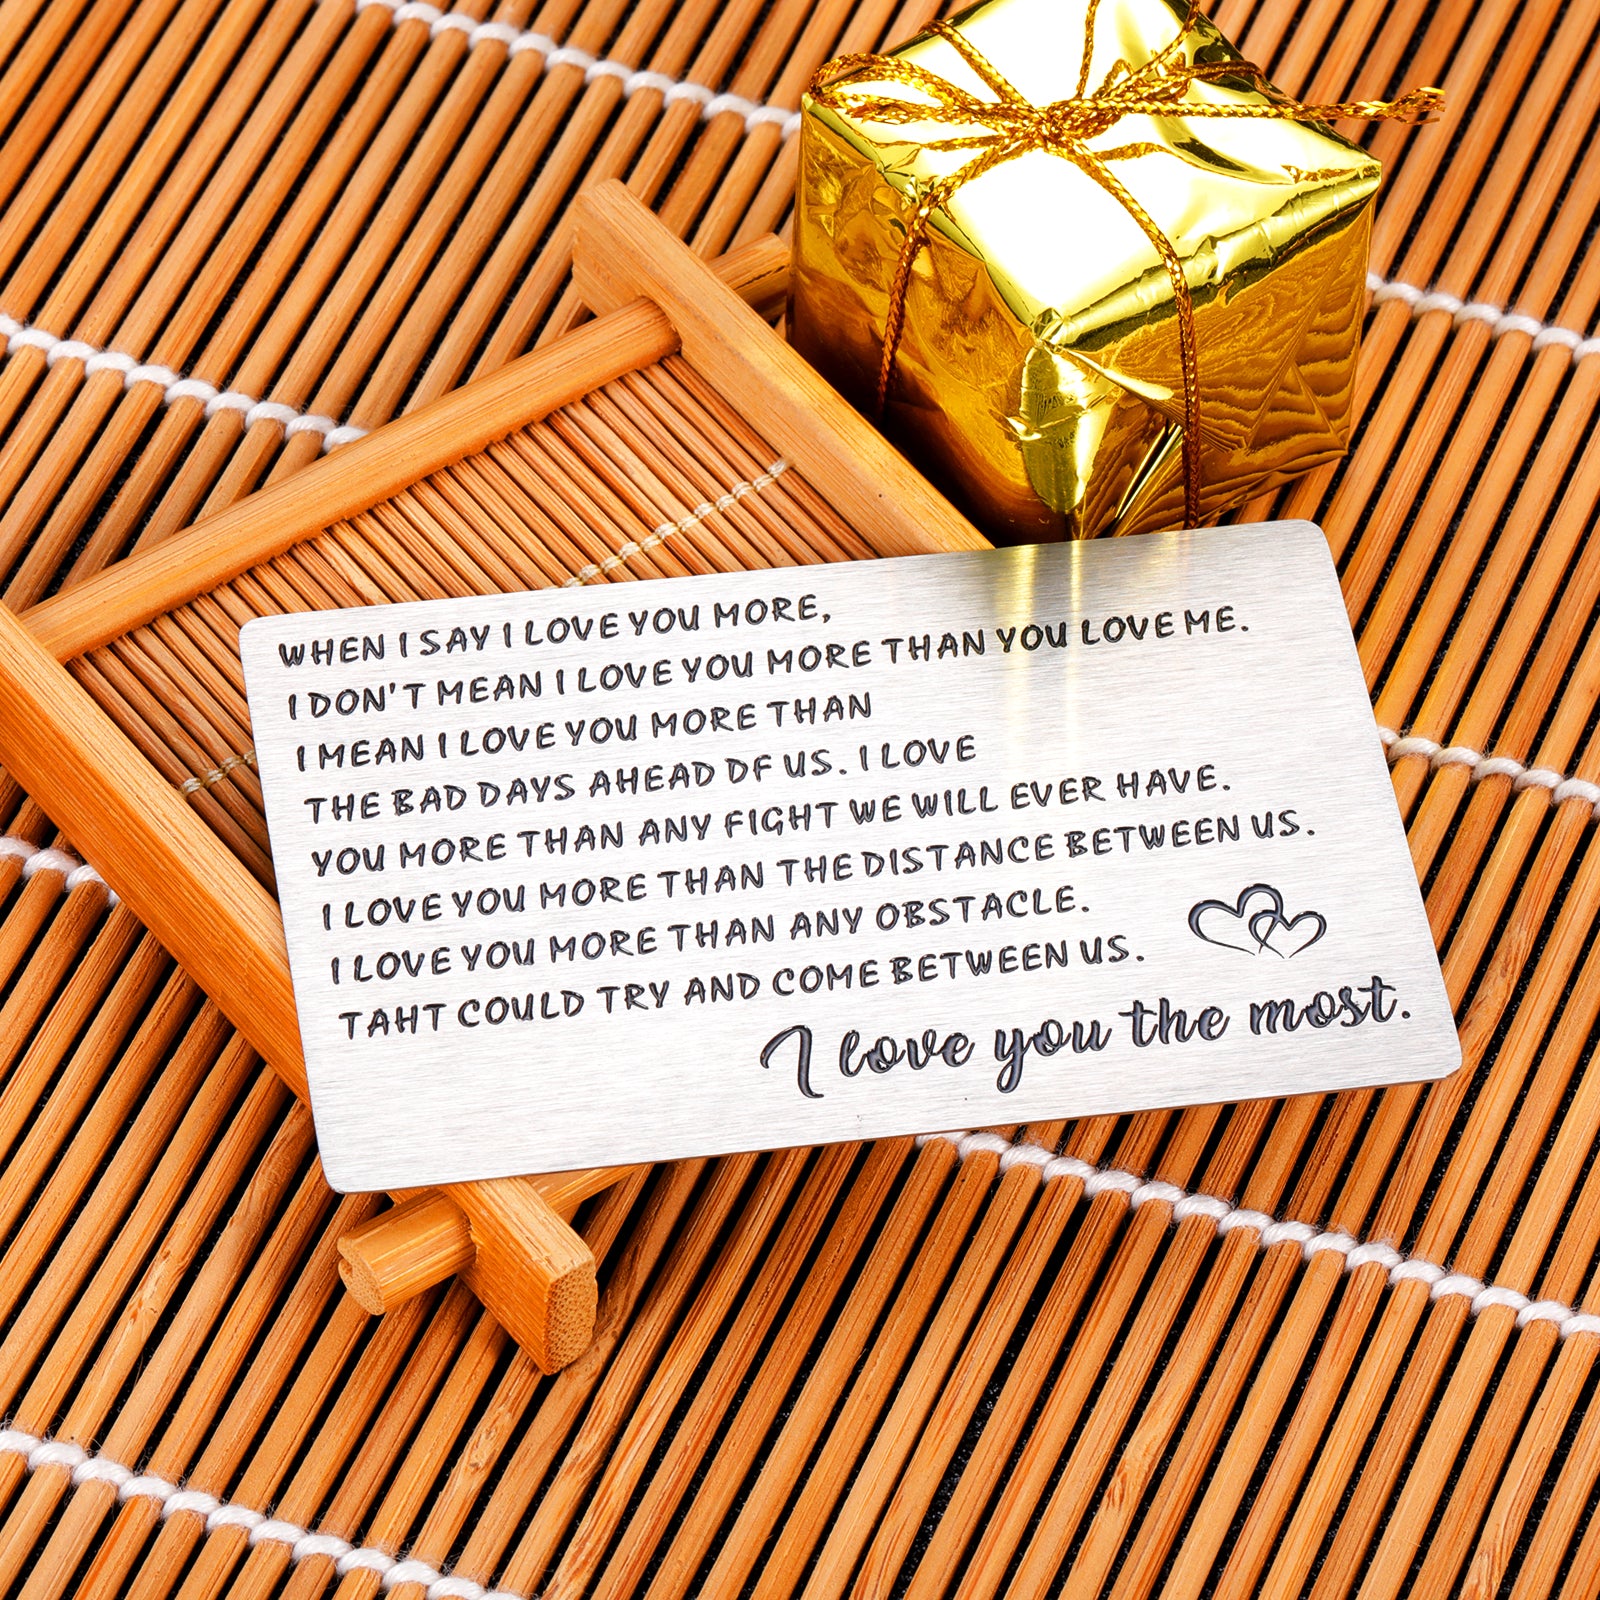 WHEN I SAY I LOVE YOU MORE,
I DON'T MEAN I LOVE YOU MORE THAN YOU LOVE ME.
I MEAN I LOVE YOU MORE THAN
THE BAD DAYS AHEAD DF US. I LOVE
YOU MORE THAN ANY FIGHT WE WILL EVER HAVE.
I LOVE YOU MORE THAN THE DISTANCE BETWEEN US.
I LOVE YOU MORE THAN ANY OBSTACLE.
TAHT COULD TRY AND COME BETWEEN US.
I love you the most.